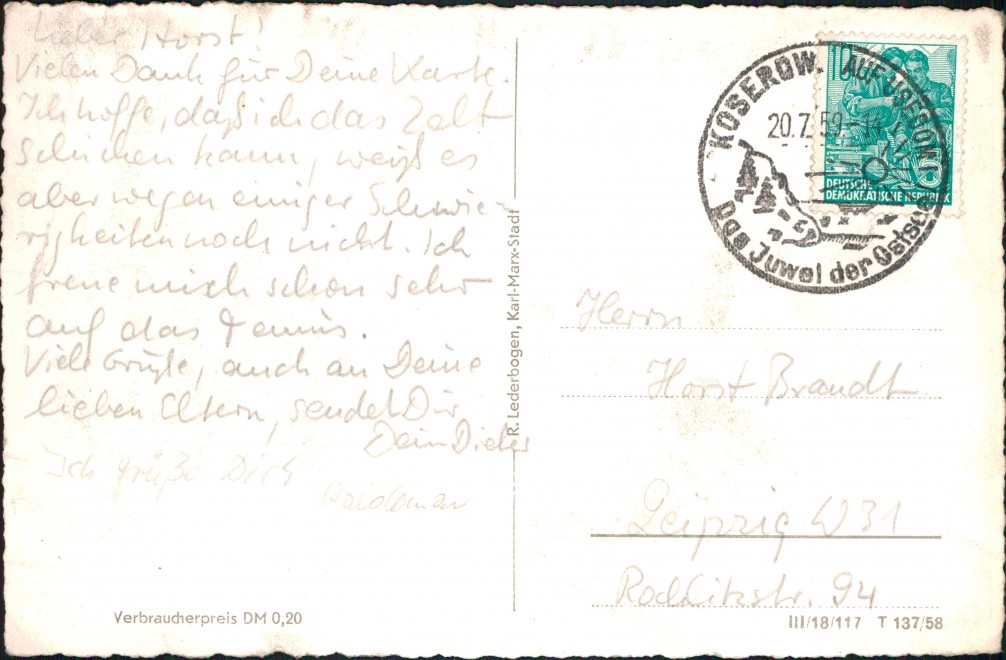 Lieber Horst!
Vielen Dank für Deine Karte.
Ich hoffe, daß ich das Zelt
schicken kann, weiß es
aber wegen einiger Schwie-
rigkeiten noch nicht. Ich
freue mich schon sehr
auf das Tennis.
Viele Grüße, auch an Deine
lieben Eltern, sendet Dir
Dein Dieter
Ich grüße Dich
Verbraucherpreis DM 0,20
R. Lederbogen, Karl-Marx-Stadt
KOSEROW. AUF USEDOM
20.7.59-14
Das Juwel der Ostsee
10
5
DEUTSCHE
DEMOKRATISCHE REPUBLIK
Herrn
Horst Brandt
Leipzig W 31
Rochlitzstr. 94
III/18/117 T 137/58